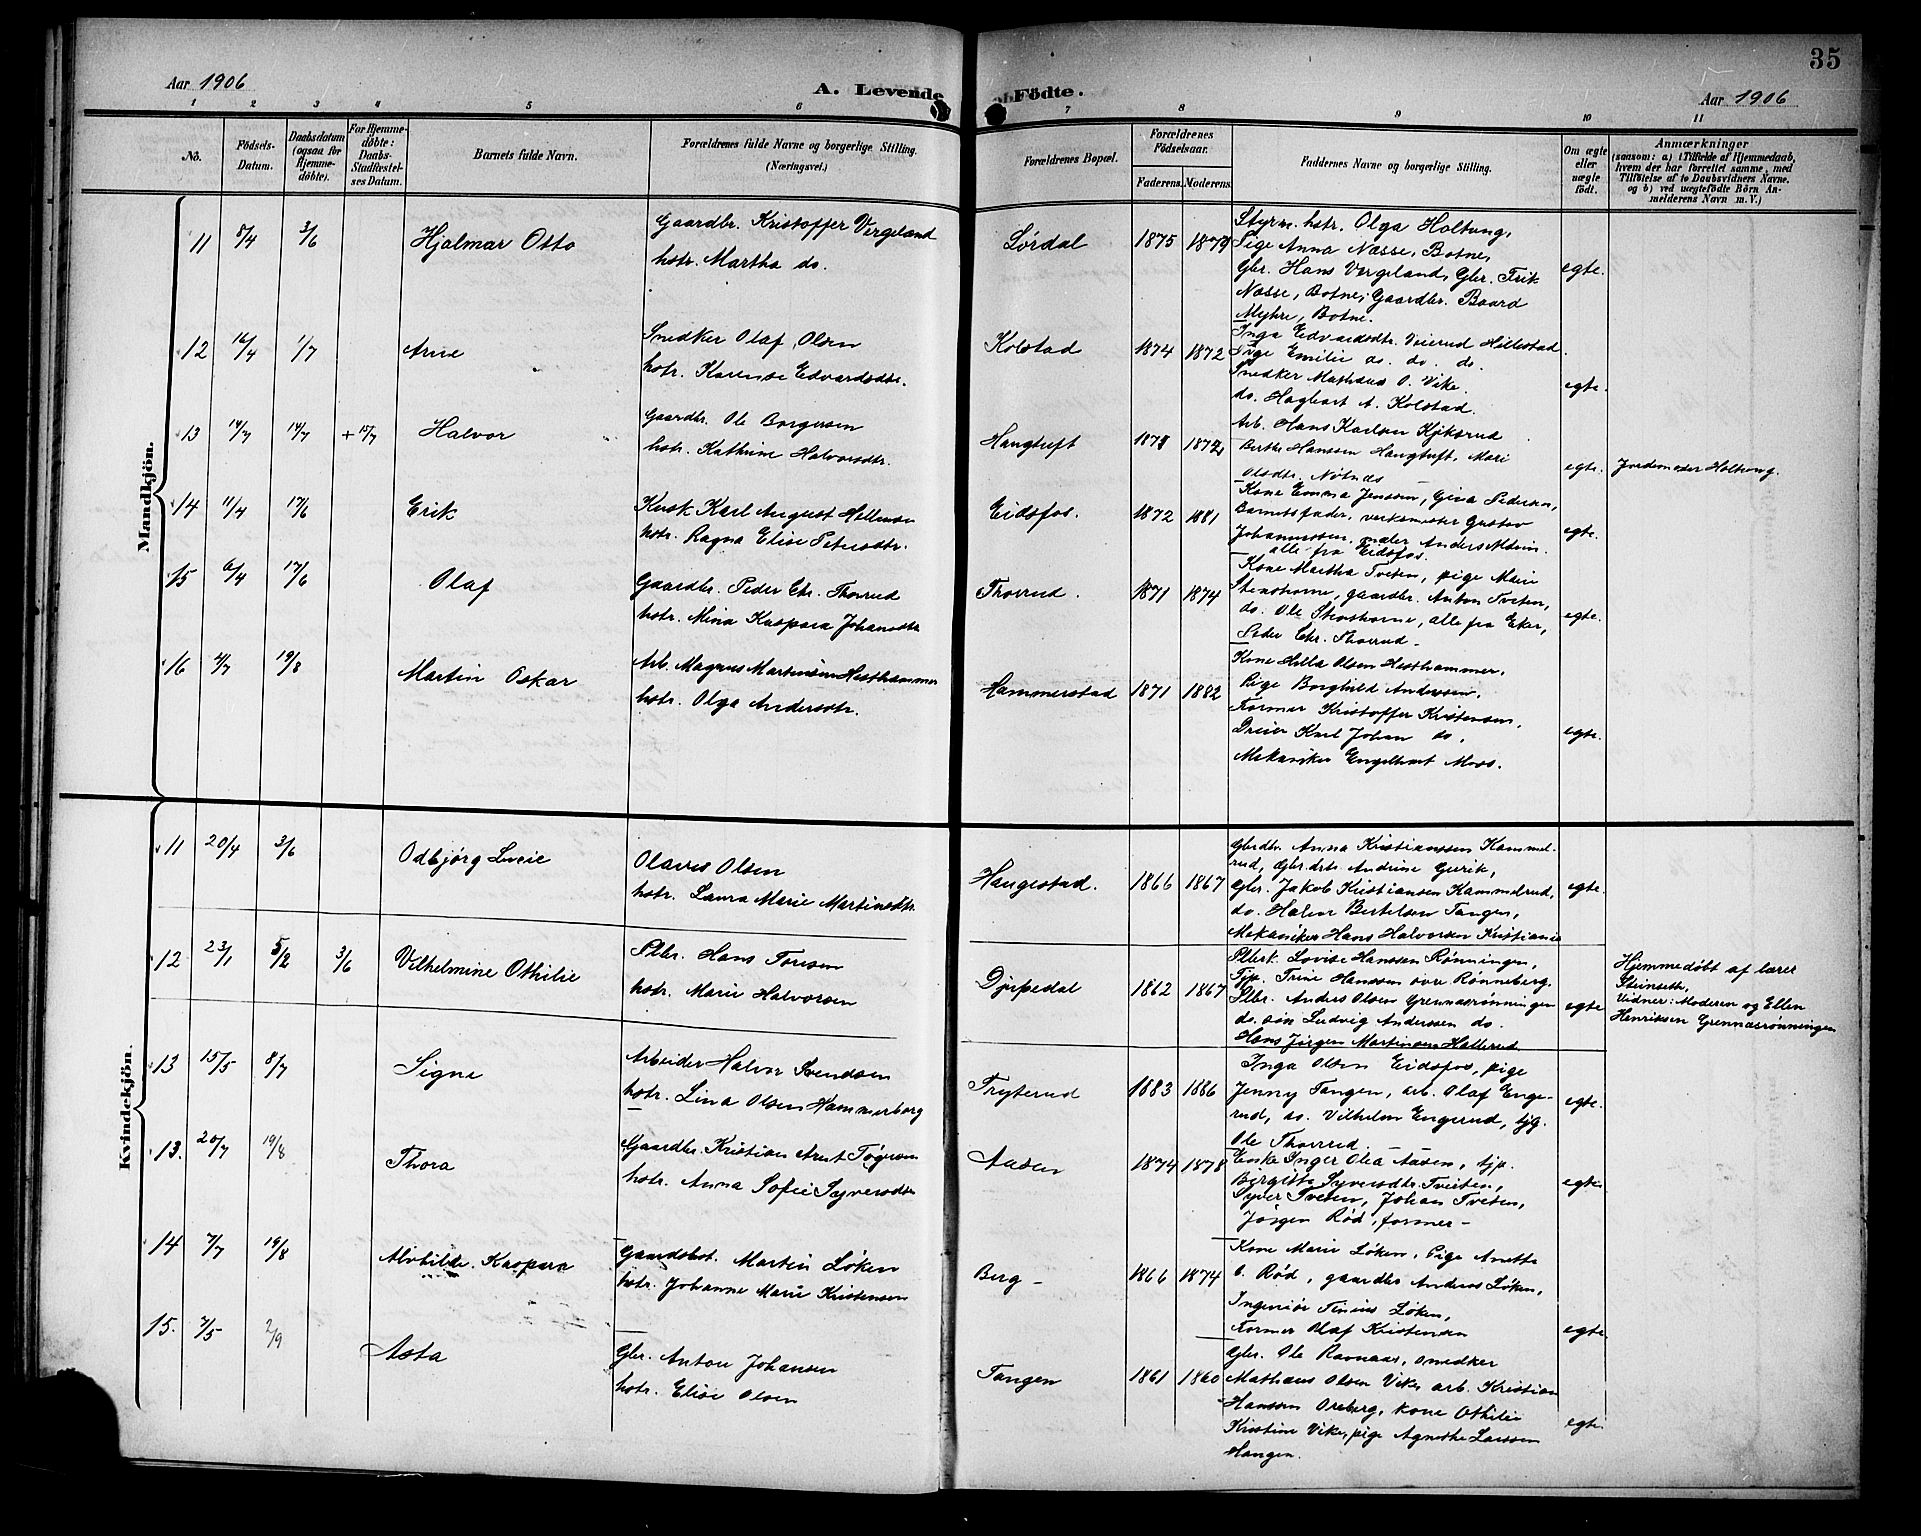 35
Aar 1906
A. Levende Födte.
Aar 1906
1 2 3 4 5 6 7 8 9 10 11
No.
Födsels-
Datum.
Daabsdatum
(ogsaa for
Hjemme-
döbte).
For Hjemme-
döbte:
Daabs-
Stadfæstel-
ses Datum.
Barnets fulde Navn.
Forældrenes fulde Navne og borgerlige Stilling.
(Næringsvei.)
Forældrenes Bopæl.
Forældrenes
Födselsaar.
Faderens. Moderens.
Faddernes Navne og borgerlige Stilling.
Om ægte
eller
uægte
født.
Anmærkninger
(saasom: a) i Tilfælde af Hjemmedaab,
hvem der har forrettet samme, med
Tilföielse af to Daabsvidners Navne,
og b) ved uægtefödte Börn An-
melderens Navn m. V.)
Mandkjön.
11 8/4 3/6 Hjalmar Otto
Gaardbr. Kristoffer Vergeland
hstr. Martha do.
Lørdal 1875 1879
Styrm. hstr. Olga Holtung,
Pige Anna Næsse, Botne,
Gbr. Hans Vergeland, Gbr. Erik
Næsse, Botne, Gaardbr. Baard
Myhre, Botne.
egte.
12 16/4 1/7 Arne
Snedker Olaf Olsen
hstr. Karense Edvardsdtr.
Kolstad 1874 1872
Inga Edvardsdtr. Veierud Hillestad
Pige Emilie do. do. do.
Snedker Mathæus O. Vike.
do. Hagbart A. Kolstad.
egte.
13 14/7 14/7 + 15/7 Halvor
Gaardbr. Ole Borgersen
hstr. Kathrine Halvorsdtr.
Haugtuft 1872
Arb. Hans Karlsen Kjiksrud
Berthe Hanssen Haugtuft, Mari
Olsdtr. Nøtnes
egte. Jordemoder Holtung.
14 11/4 17/6 Erik
Kusk Karl August
hstr. Ragna Elise Petersdtr.
Eidsfos. 1872 1881
Kone Emma Jenssen, Gina Pedersen,
Barnets fader, verksmester Gustav
Johannessen, maler Anders
alle fra Eidsfos.
egte.
15 6/4 17/6 Olaf
Gaardbr. Peder Chr. Thorrud
hstr. Mina Kaspara Johansdtr
Thorrud. 1871 1874
Kone Martha Tveten, pige Marie
Stenshorne, gaardbr. Anton Tveten,
do. Ole Stenshorne, alle fra Eker,
Peder Chr. Thorrud
egte.
16 2/7 19/8 Martin Oskar
Arb. Magnus Martinsen Hesthammer
hstr. Olga Andersdtr.
Hammerstad 1871 1882
Kone Hilla Olsen Hesthammer.
Pige Borghild Andersen.
Former Kristoffer Kristensen.
Dreier Karl Johan do,
Mekaniker Engelhart Moss.
egte.
Kvindekjön.
11 20/4 3/6 Odbjörg Lucie
Olaves Olsen
hstr. Laura Marie Martinsdtr.
Haugestad. 1866 1867
Gbrdtr. Anna Kristianssen Kammel-
rud, Gbr.dtr. Andrine Gurik,
Gbr. Jakob Kristiansen Kammelrud,
do. Halvor Bertelsen Tangen,
Mekaniker Hans Halvorsen Kristiania
egte.
12 23/1 5/2 3/6 Vilhelmine Othilie
Plbr. Hans Toresen
hstr. Marie Halvorsen
Djupedal 1862 1867
Plbrk. Lovise Hanssen Rønningen,
Tjp. Trine Hanssen øvre Rønneberg.
Plbr. Anders Olsen Grennesrønningen
do. søn Ludvig Anderssen do.
Hans Jørgen Martinsen Hallerud
egte
Hjemmedøbt af lærer
Steinseth,
Vidner: Moderen og Ellen
Henriksen Grennesrønningen
13 15/5 8/7 Signe
Arbeider Halvor Svendsen
hstr. Lina Olsen Hammerborg
Tryterud 1883 1886
Inga Olsen Eidsfos, pige
Jenny Tangen, arb. Olaf Enge-
rud, do. Vilhelm Engerud, tjg.
Ole Thorrud.
egte.
13. 20/7 19/8 Thora
Gaardbr. Kristian Arnt
hstr. Anna Sofie Syversdtr
Aasen 1874 1878
Enke Inger Olea Aasen, tjp.
Birgitte Syversdtr. Tveiten,
Syver Tveten, Johan Tveten,
Jørgen Rød, former -
egte.
14 7/7 19/8 Alvhilde Kaspara
Gaardbest. Martin Løken
hstr. Johanne Marie Kristensen
Berg - 1866 1874
Kone Marie Løken, Pige Anette
C. Rød, gaardbr Anders Løken,
Ingeniør Tinius Løken,
Former Olaf Kristensen
egte
15. 7/5 2/9 Asta
Gbr. Anton Johansen
hstr. Elise Olsen
Tangen 1861 1860
Gbr. Ole Ravnaas, snedker
Mathæus Olsen Vike, arb. Kristian
Hanssen Oreberg, kone Othilie
Kristine Vike, pige Agnethe Larssen
Haugen.
egte